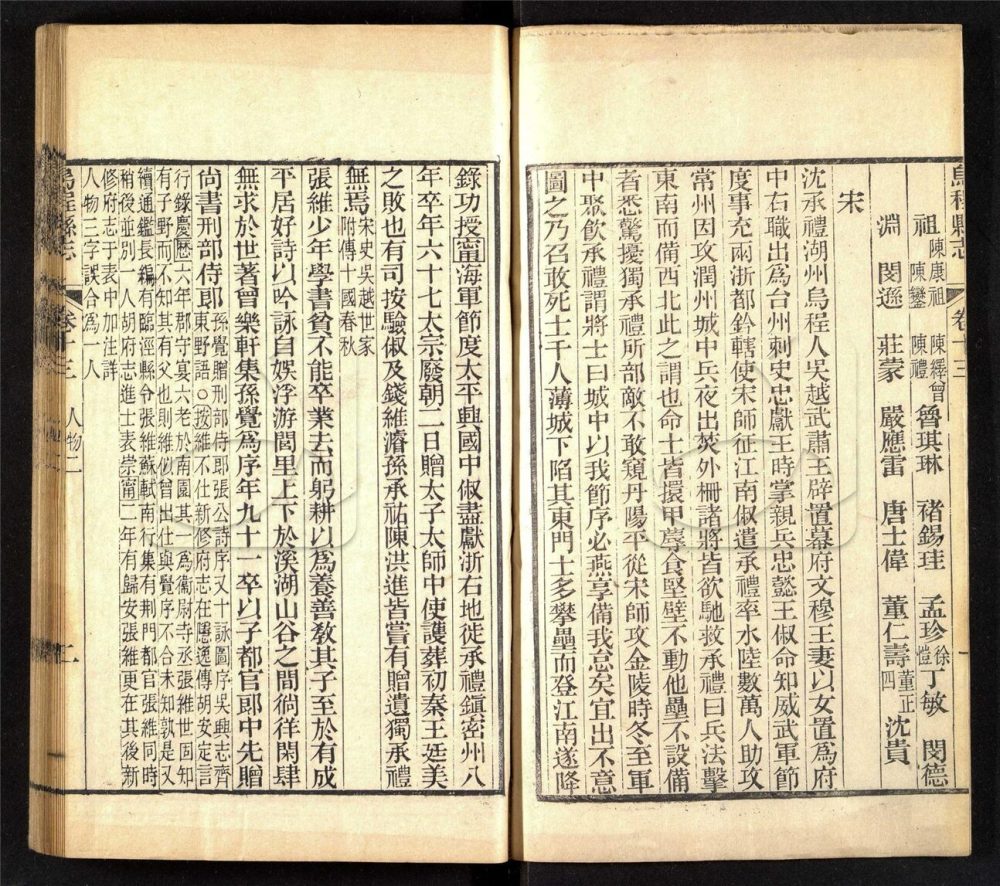 烏程縣志 卷十三 一
祖 陳康祖 陳鑾 陳繹曾 陳禮 魯琪琳 褚錫珪 孟珍 徐愷 丁敏 閔德
淵 閔遜 莊蒙 嚴應雷 唐士偉 董仁壽 董正四 沈貴
宋
沈承禮湖州烏程人吳越武肅王辟置幕府文穆王妻以女置為府
中右職出爲台州刺史忠獻王時掌親兵忠懿王俶命知威武軍節
度事充兩浙都鈐轄使宋師征江南俶遣承禮率水陸數萬人助攻
常州因攻潤州城中兵夜出焚外柵諸將皆欲馳救承禮曰兵法擊
東南而備西北此之謂也命士皆擐甲蓐食堅壁不動他壘不設備
者悉驚擾獨承禮所部敵不敢窺丹陽平從宋師攻金陵時冬至軍
中聚飲承禮謂將士曰城中以我節序必燕享備我怠矣宜出不意
圖之乃召敢死士千人薄城下陷其東門士多攀壘而登江南遂降
錄功授甯海軍節度太平興國中俶盡獻浙右地徙承禮鎭密州八
年卒年六十七太宗廢朝二日贈太子太師中使護葬初秦王廷美
之敗也有司按驗俶及錢維濬孫承祐陳洪進皆嘗有贈遺獨承禮
無焉 宋史吳越世家附傳十國春秋
張維少年學書貧不能卒業去而躬耕以爲養善教其子至於有成
平居好詩以吟詠自娛浮游閭里上下於溪湖山谷之間徜徉閑肆
無求於世著曾樂軒集孫覺爲序年九十一卒以子都官郎中先贈
尚書刑部侍郎 孫覺贈刑部侍郎張公詩序又十詠圖序吳興志齊東野語○按維不仕新修府志在隱逸傳胡安定言
行錄慶曆六年郡守宴六老於南園其一爲衞尉寺丞張維世固知
有子野而不知其有父也則維似曾出仕與覺序不合未知孰是又
續通鑑長編有臨涇縣令張維蘇軾南行集有荆門都官張維同時
稍後並别一人胡府志進士表崇甯二年有歸安張維更在其後新
修府志于表中加注詳
人物三字誤合爲一人
烏程縣志 卷十三 人物二 二